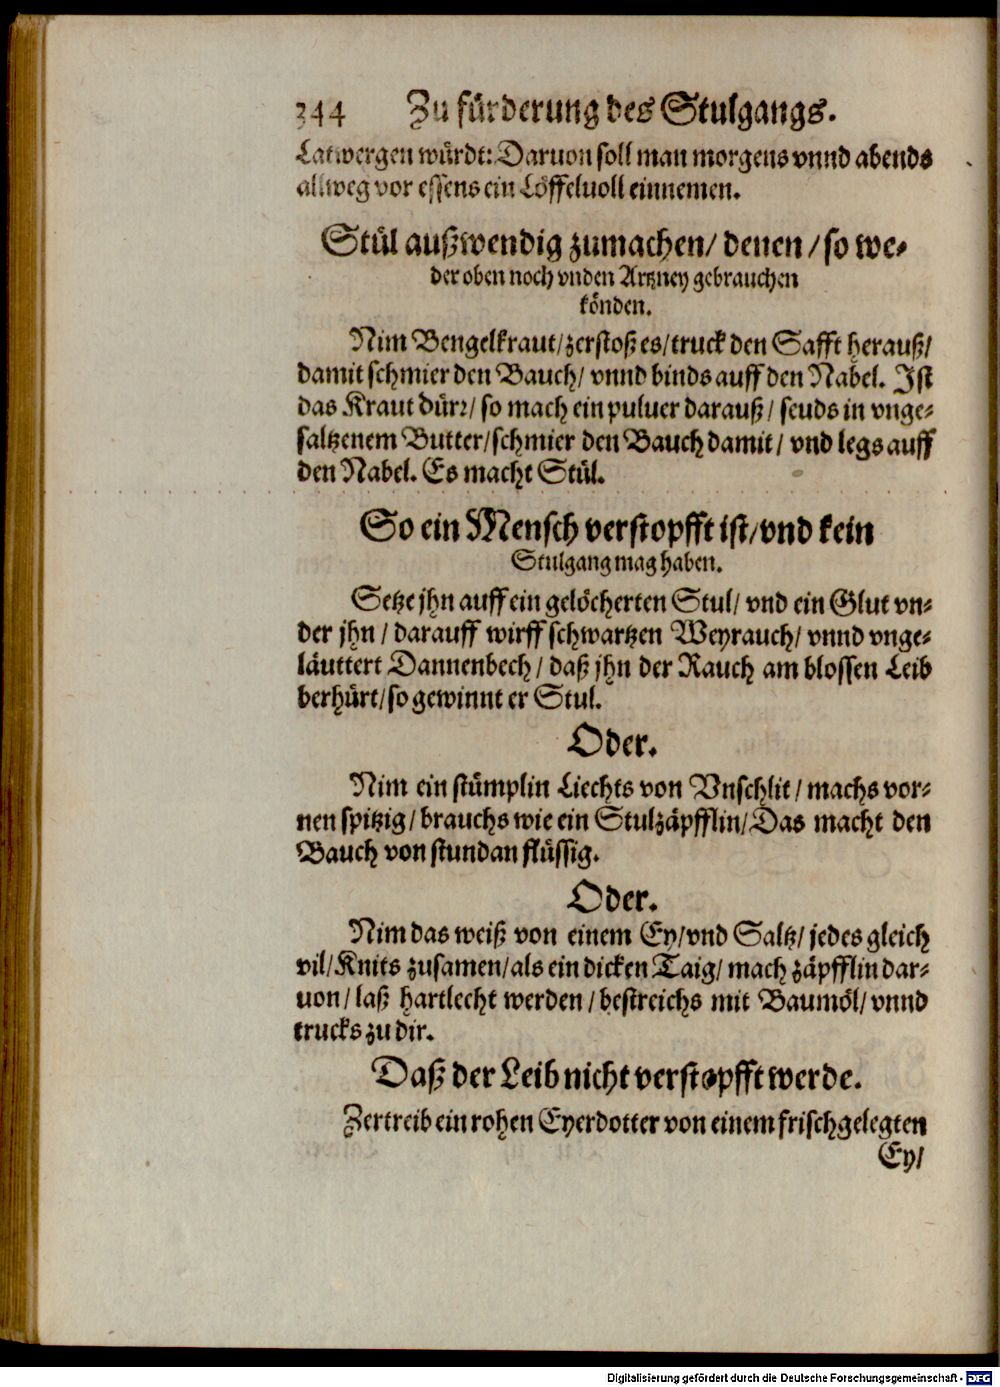 344 Zu fürderung des Stulgangs.
Latwergen würdt: Daruon soll man morgens vnnd abends
allweg vor essens ein Löffeluoll einnemen.
Stůl außwendig zumachen/ denen/ so we-
der oben noch vnden Artzney gebrauchen
könden.
Nim Bengelkraut/ zerstoß es/ truck den Safft herauß/
damit schmier den Bauch/ vnnd binds auff den Nabel. Ist
das Kraut dürr/ so mach ein puluer darauß/ seuds in vnge-
saltzenem Butter/ schmier den Bauch damit/ vnd legs auff
den Nabel. Es macht Stůl.
So ein Mensch verstopfft ist/ vnd kein
Stulgang mag haben.
Setze jhn auff ein gelöcherten Stul/ vnd ein Glut vn-
der jhn/ darauff wirff schwartzen Weyrauch/ vnnd vnge-
läuttert Dannenbech/ daß jhn der Rauch am blossen Leib
berhürt/ so gewinnt er Stul.
Oder.
Nim ein stümplin Liechts von Vnschlit/ machs vor-
nen spitzig/ brauchs wie ein Stulzäpfflin/ Das macht den
Bauch von stundan flüssig.
Oder.
Nim das weiß von einem Ey/ vnd Saltz/ jedes gleich
vil/ Knits zusamen/ als ein dicken Taig/ mach zäpfflin dar-
uon/ laß hartlecht werden/ bestreichs mit Baumöl/ vnnd
trucks zu dir.
Daß der Leib nicht verstopfft werde.
Zertreib ein rohen Eyerdotter von einem frischgelegten
Ey/
Digitalisierung gefördert durch die Deutsche Forschungsgemeinschaft - DFG